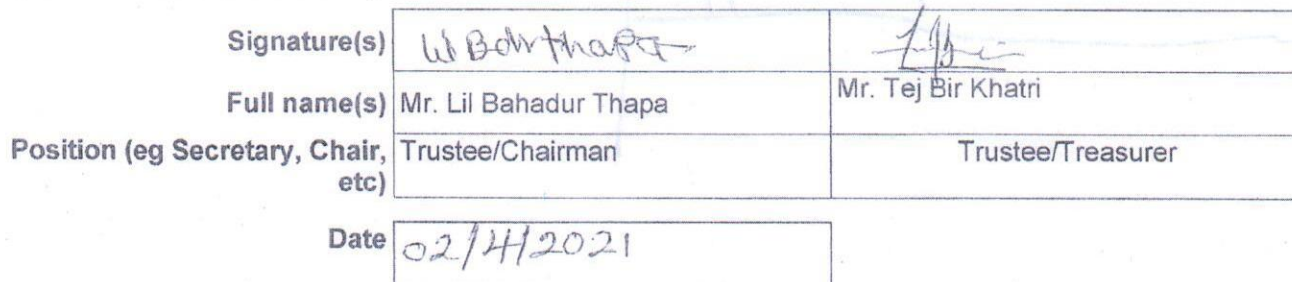 Signature(s) Lil Bdr thapa
Full name(s) Mr. Lil Bahadur Thapa Mr. Tej Bir Khatri
Position (eg Secretary, Chair, Trustee/Chairman Trustee/Treasurer
etc)
Date 02/4/2021